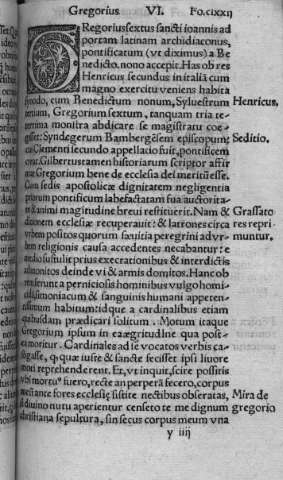 Gregorius VI. Fo.clxxij
GRegoriussextus sancti ioannis ad
portam latinam archidiaconus,
pontificatum (vt diximus) a Be
nedicto.nono accepit. Has ob res
Henricus secundus in italiā cum
magno exercitu veniens habita
synodo, cum Benedictum nonum, Syluestrum Henricus.
tertium, Gregorium sextum, tanquam tria te-
terrima monstra abdicare se magistratu coe-
gisset: Syndegerum Bambergēsem episcopum Seditio.
qui Clemens secundo appellatio fuit, pontificem
creat. Gilbertus tamen historiarum scriptor affir
mat Gregorium bene de ecclesia dei meritū esse.
Cum sedis apostolicæ dignitatem negligentia
priorum pontificum labefactatam sua auctorita-
te & animi magnitudine breui restituerit. Nam & Grassato
ditionem ecclesiæ recuperauit: & latrones circa res repri
vrbem positos quorum sæuitia peregrini adur- muntur.
bem religionis causa accedentes necabantur: e
medio sustulit prius execrationibus & interdictis
admonitos deinde vi & armis domitos. Hanc ob
rem seruata perniciosis hominibus vulgo homi-
cidissimoniacum & sanguinis humani appeten-
tissimum habitum: idque a cardinalibus etiam
quibusdam prædicari solitum. Motum itaque
Gregorium ipsum in ea ægritudine qua post-
ea moritur. Cardinales ad se vocatos verbis ca-
stigasse, q, quæ iuste & sancte fecisset ipsi liuore
moti reprehenderent. Et, vt inquit, scire possitis
vbi mortu⁹ fuero, recte an perperā fecero, corpus
meū ante fores ecclesię sistite nectibus obseratas, Mira de
si diuino nutu aperientur censetote me dignum gregorio
christiana sepultura, sin secus corpus meum vna
y iiij